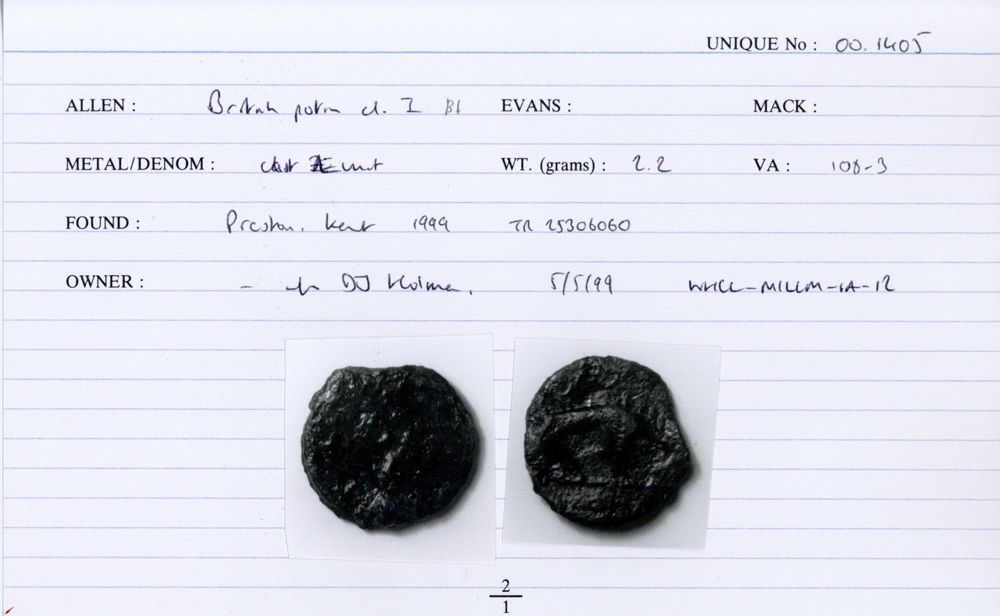 UNIQUE No : 00.1405
ALLEN : British potin cl. I B1 EVANS : MACK :
METAL/DENOM : cast Æ unit WT. (grams) : 2.2 VA : 108-3
FOUND : Preston, Kent 1999 TR 25306060
OWNER : - DJ Holman. 5/5/99 -MILLM-1A-12
2
1